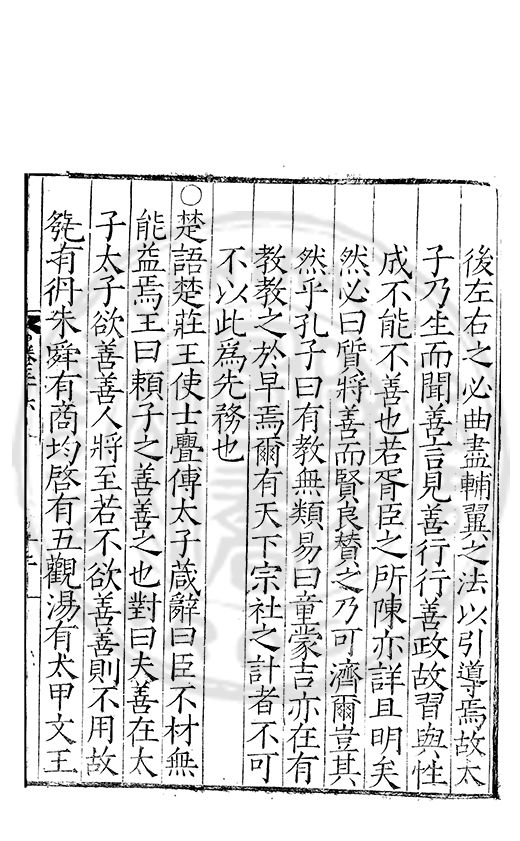 後左右之必曲盡輔翼之法以引導焉故太
子乃生而聞善言見善行行善政故習與性
成不能不善也若胥臣之所陳亦詳且明矣
然必曰質將善而賢良賛之乃可濟爾豈其
然乎孔子曰有教無類易曰童蒙吉亦在有
教教之於早焉爾有天下宗社之計者不可
不以此爲先務也
○楚語楚莊王使士亹傅太子葴辭曰臣不材無
能益焉王曰頼子之善善之也對曰夫善在太
子太子欲善善人將至若不欲善善則不用故
堯有丹朱舜有商均啓有五觀湯有太甲文王